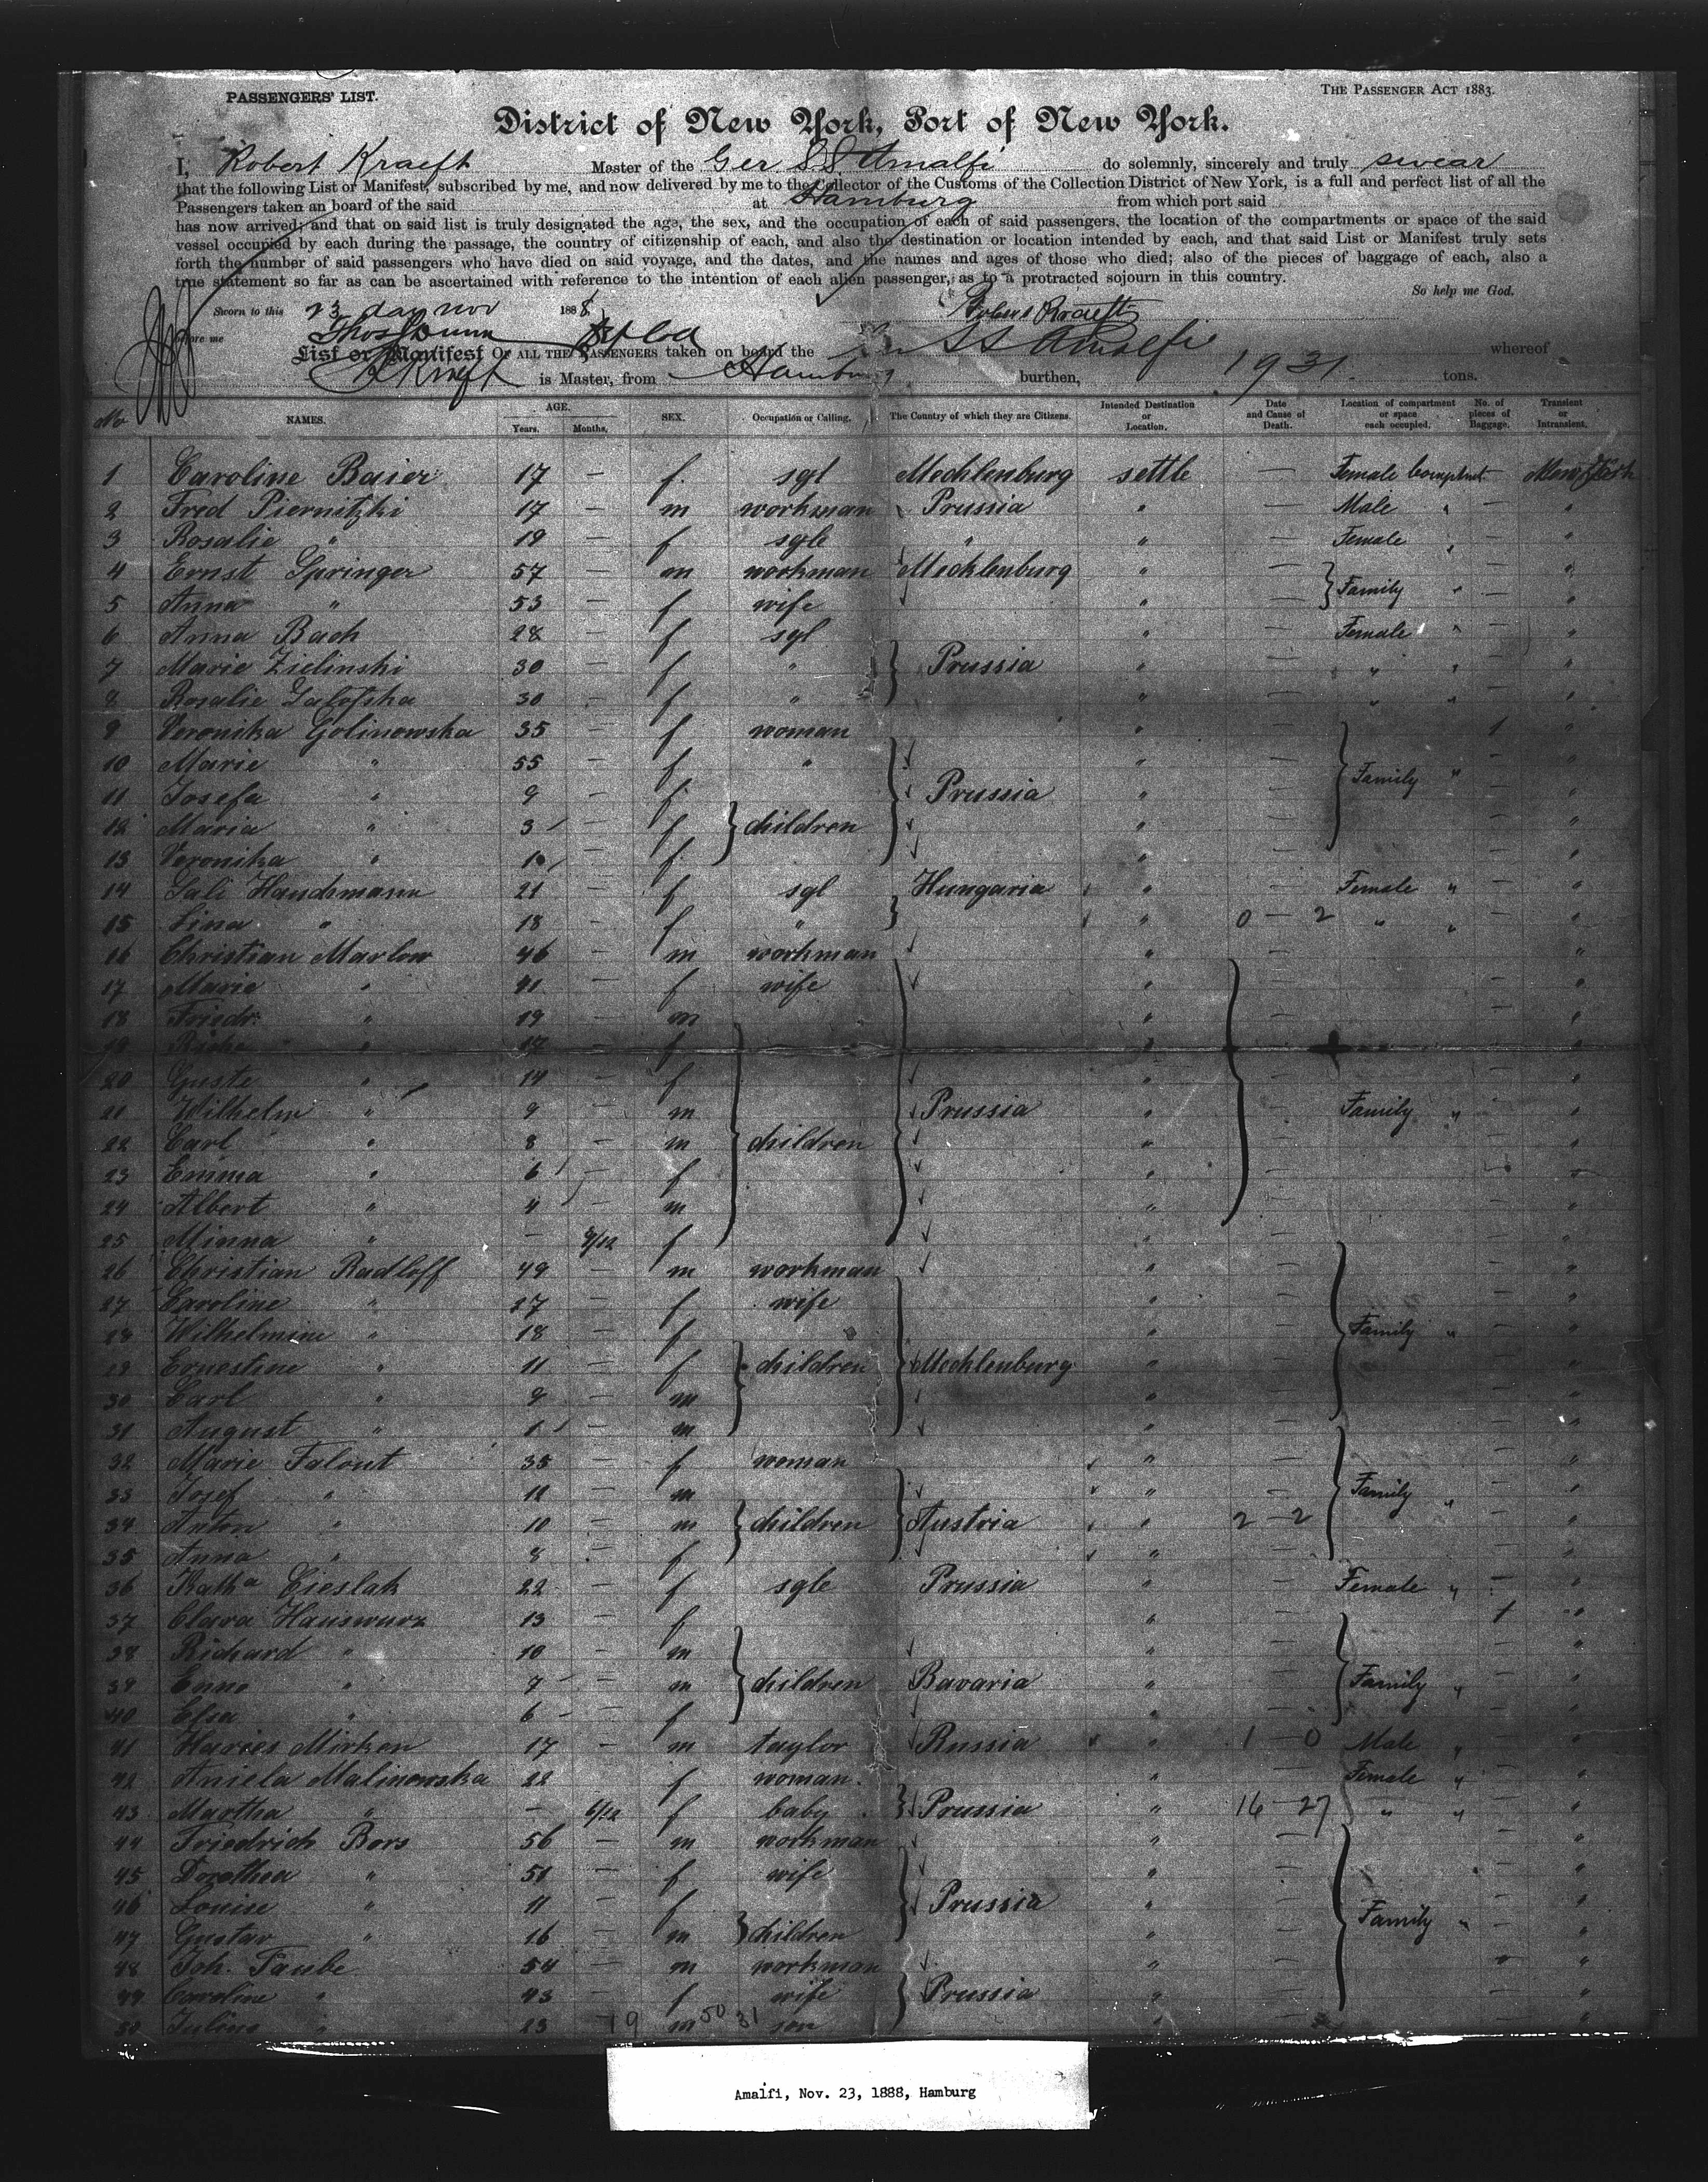 PASSENGERS' LIST.
THE PASSENGER ACT 1883.
District of New York, Port of New York.
I, Robert Kraefft Master of the Ger S.S. Amalfi do solemnly, sincerely and truly swear
that the following List or Manifest, subscribed by me, and now delivered by me to the Collector of the Customs of the Collection District of New York, is a full and perfect list of all the
Passengers taken an board of the said at Hamburg from which port said
has now arrived; and that on said list is truly designated the age, the sex, and the occupation of each of said passengers, the location of the compartments or space of the said
vessel occupied by each during the passage, the country of citizenship of each, and also the destination or location intended by each, and that said List or Manifest truly sets
forth the number of said passengers who have died on said voyage, and the dates, and the names and ages of those who died; also of the pieces of baggage of each, also a
true statement so far as can be ascertained with reference to the intention of each alien passenger, as to a protracted sojourn in this country.
So help me God.
Sworn to this 23 day nov 1888 Robert Kraefft
before me
List or Manifest OF ALL THE PASSENGERS taken on board the SS Amalfi whereof
R Kraefft is Master, from Hamburg burthen, 1931 tons.
No NAMES. AGE. Years. Months. SEX. Occupation or Calling. The Country of which they are Citizens. Intended Destination or Location. Date and Cause of Death. Location of compartment or space each occupied. No. of pieces of Baggage. Transient or Intransient.
1 Caroline Baier 17 — f. sgl Mecklenburg settle — Female Compartmt. — New York
2 Fred Piernitzki 17 — m workman Prussia " — Male " — "
3 Rosalie " 19 — f sgle " " — Female " — "
4 Ernst Springer 57 — m workman Mecklenburg " — — "
5 Anna " 53 — f wife " — Family " — "
6 Anna Bach 28 — f sgl " — Female " — "
7 Marie Zielinski 30 — f " Prussia " — " " — "
8 Rosalie 30 — f " " — " " — "
9 Veronika Golinowska 35 — f woman " — 1 "
10 Marie " 55 — f " " — Family " — "
11 Josefa " 9 — f Prussia " — — "
12 Maria " 3 — f children " — — "
13 Veronika " — f " — — "
14 Sali Handmann 21 — f sgl Hungaria " — Female " — "
15 Lina " 18 — f " " 0 — 2 " " — "
16 Christian Marlow 46 — m workman " — — "
17 Marie " 41 — f wife " — — "
18 Friedr. " 19 — m " — — "
19 " 17 — f " — — "
20 Guste " 14 — f " — — "
21 Wilhelm " 9 — m Prussia " — Family " — "
22 Carl " 8 — m children " — — "
23 Emma " 6 — f " — — "
24 Albert " 4 — m " — — "
25 Minna " — 9/12 f " — — "
26 Christian Radloff 49 — m workman " — — "
27 Caroline " 27 — f wife " — — "
28 Wilhelmine " 18 — f " — Family " — "
29 Ernestine " 11 — f children Mecklenburg " — — "
30 Carl " 9 — m " — — "
31 August " 1 — m " — — "
32 Marie Falout 35 — f woman " — — "
33 Josef " 12 — m " — Family " — "
34 Anton " 10 — m children Austria " 2 — 2 — "
35 Anna " 8 — f " — — "
36 Katha Cieslak 22 — f sgle Prussia " — Female " — "
37 Clara Hauswurz 13 — f " — 1 "
38 Richard " 10 — m " — — "
39 " 7 — m children Bavaria " — Family " — "
40 Elsa " 6 — f " — — "
41 Mirken 17 — m taylor Russia " 1 — 0 Male " — "
42 Aniela Malinowska 22 — f woman " — Female " — "
43 Martha " — 6/12 f baby Prussia " 16 — 27 " " — "
44 Friedrich Bors 56 — m workman " — — "
45 Dorothea " 51 — f wife " — — "
46 Louise " 11 — f Prussia " — — "
47 Gustav " 16 — m children " — Family " — "
48 Joh. Taube 54 — m workman " — — "
49 Caroline " 43 — f wife Prussia " — — "
50 " 23 19 m 50 31 son " — — "
Amalfi, Nov. 23, 1888, Hamburg